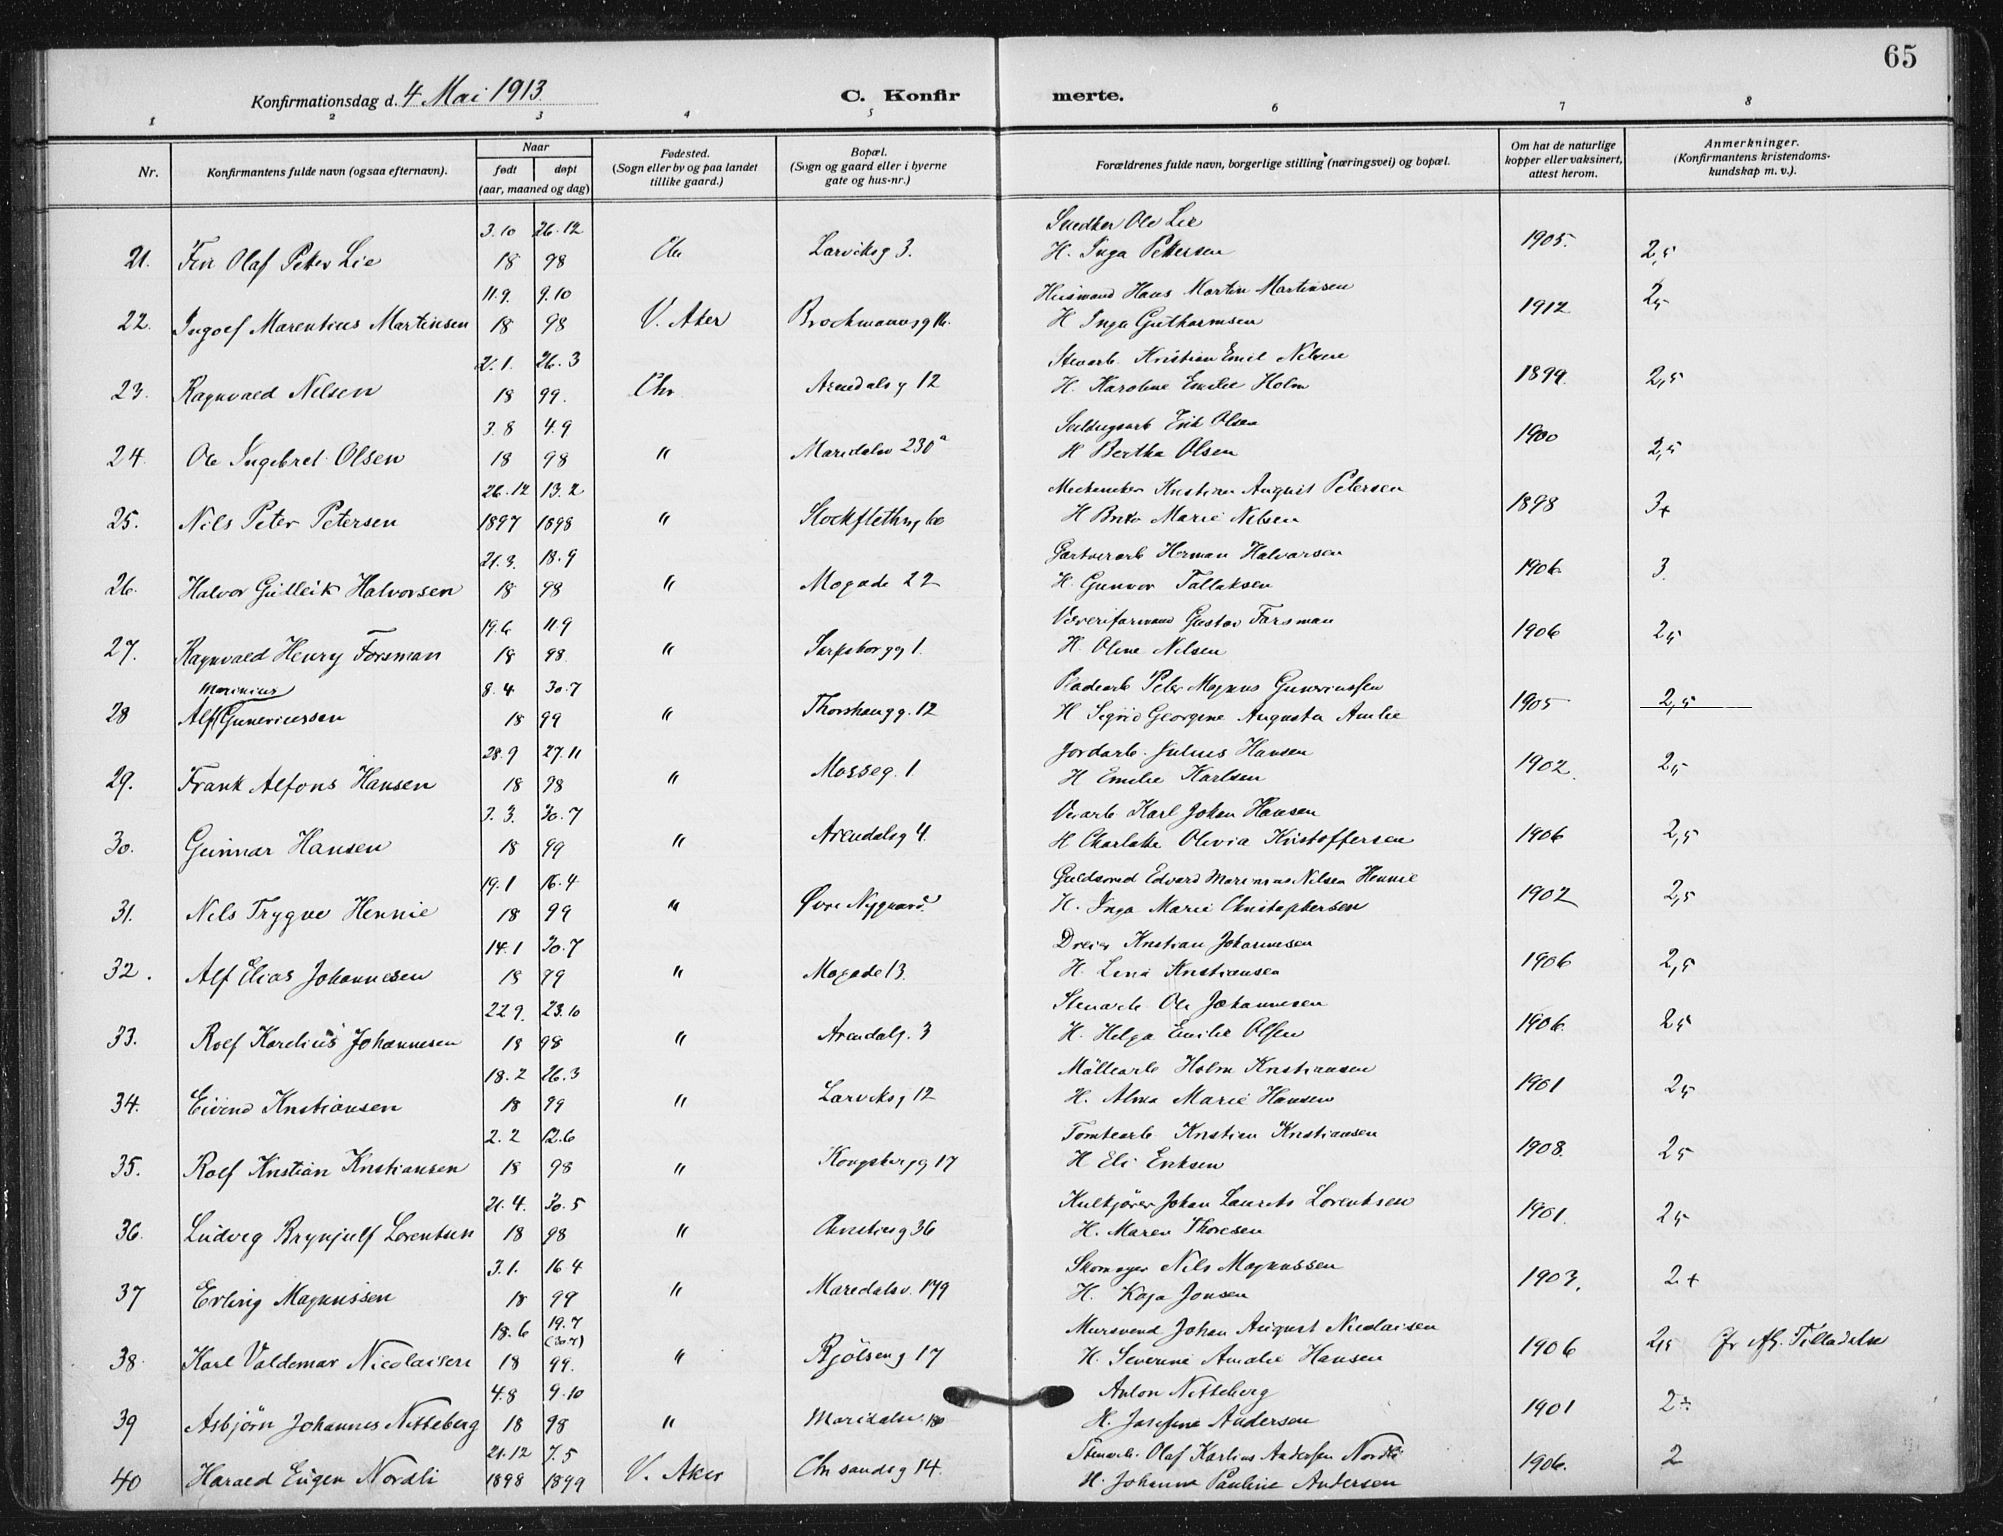 65
Konfirmationsdag d. 4 Mai 1913
C. Konfir merte.
1 2 3 4 5 6 7 8
Nr. Konfirmantens fulde navn (ogsaa efternavn). Naar født døpt (aar, maaned og dag) Fødested. (Sogn eller by og paa landet tillike gaard.) Bopæl. (Sogn og gaard eller i byerne gate og hus-nr.) Forældrenes fulde navn, borgerlige stilling (næringsvei) og bopæl. Om hat de naturlige kopper eller vaksinert, attest herom. Anmerkninger. (Konfirmantens kristendoms-kundskap m. v.).
3.10 26.12 Snedker Ole Lie
21. Finn Olaf Peter Lie 18 98 Chr Larviksg 3. H. Inga Pettersen 1905. 2,5
11.9. 9.10 Husmand Hans Martin Martinsen
22. Ingolf Marentius Martinsen 18 98 V. Aker Brochmannsg 16. H Inga Guthormsen 1912 25
2.1. 26.3 Stenarb Kristian Emil Nelsen
23. Ragnvald Nelsen 18 99. Chr Arendalsg 12 H. Karoline Emilie Holm 1899. 2,5
3.8 4.9 Erik Olsen
24. Ole Ingebret Olsen 18 98 " Maridalsv 230a H Bertha Olsen 1900 2,5
26.12 13.2 Mekaniker Kristian August Petersen
25. Nils Peter Petersen 1897 1898 " H Marie Nelsen 1898 3+
21.3. 18.9 Herman Halvorsen
26. Halvor Gulleik Halvorsen 18 98 " Mogade 22 H. Gunvor Tallaksen 1906. 3.
19.6 11.9 Væveriformand Gustav Forsman
27. Ragnvald Henry Forsman 18 98. " Sarpsborgg 1. H. Oline Nelsen 1906 25
Marinius 8.4. 30.7 Pladearb Peter Magnus Gunerinssen
28 Alf Gunerinssen 18 99 " Thorshaugg. 12 H Sigrid Georgine Augusta Amlie 1905 2,5
28.9 27.11 Jordarb. Julius Hansen
29. Frank Alfons Hansen 18 98 " Mosseg. 1 H Emilie Karlsen 1902. 25
3.3. 30.7 Veiarb Karl Johan Hansen
30. Gunnar Hansen 18 99 " Arendalsg 4. H Charlotte Olivia Kristoffersen 1906 2,5
19.1 16.4 Guldsmed Edvard Marinius Nilsen Hennie
31. Nils Trygve Hennie 18 99 " Øvre Nygaard. H. Inga Marie Christophersen 1902 2,5
14.1 30.7 Dreier Kristian Johannesen
32. Alf Elias Johannesen 18 99 " Mogade 13. H. Lina Kristiansen 1906 2,5
22.9. 23.10 Stenarb Ole Johannesen
33. Rolf Karelius Johannesen 18 98 " Arendalsg. 3 H. Helga Emilie Olsen 1906. 25
18.2 26.3 Möllearb Holm Kristiansen
34. Eivind Kristiansen 18 99 " Larviksg 12 H. Alma Marie Hansen 1901 25
2.2 12.6 Tomtearb Kristian Kristiansen
35. Rolf Kristian Kristiansen 18 98 " Kongsbergg 17 H Eli Eriksen 1908. 25
21.4. 30.5 Kulkjører Johan Laurits Lorentsen
36. Ludvig Brynjulf Lorentsen 18 98 " Christiesg 36 H. Maren Thoresen 1901. 25
3.1. 16.4 Skomager Nils Magnussen
37 Erling Magnussen 18 99 " Maridalsv. 179 H. Kaja Jonsen 1903. 2+
18.6 19.7 (30.7) Mursvend Johan August Nicolaisen
38. Karl Valdemar Nicolaisen 18 99. " Bjölseng 17 H. Severine Amalie Hansen 1906 2,5 Tilladelse
4.8 9.10 Anton Nitteberg
39 Asbjørn Johannes Nitteberg 18 98 " Maridalsv. H. Josefine Andersen 1901 2÷
21.12 7.5 Stenarb. Olaf Karlius Andersen Nordli
40 Harald Eugen Nordli 1898 1899 V. Aker Chr sandsg 14. H. Johanne Pauline Andersen 1906. 2